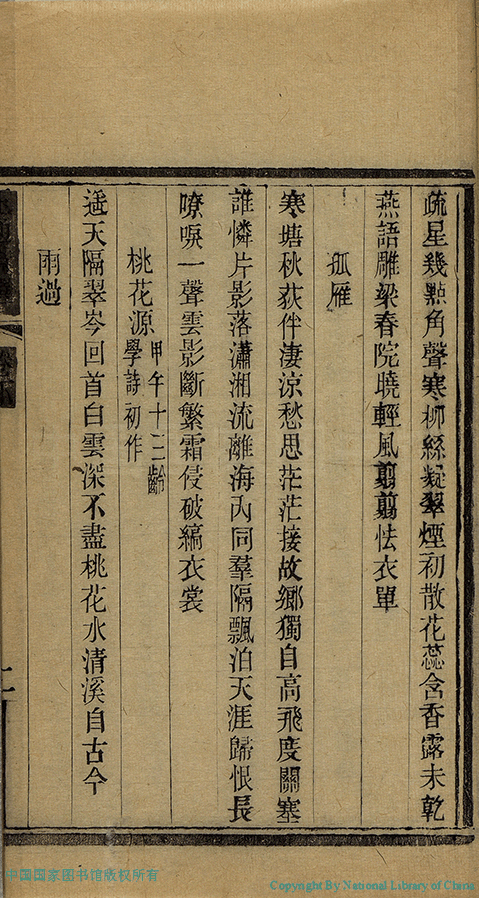 疏星幾點角聲寒柳絲凝翠煙初散花蕊含香露未乾
燕語雕梁春院曉輕風翦翦怯衣單
孤雁
寒塘秋荻伴淒涼愁思茫茫接故鄉獨自高飛度關塞
誰憐片影落瀟湘流離海內同羣隔飄泊天涯歸恨長
嘹唳一聲雲影斷繁霜侵破縞衣裳
桃花源甲午十三齡學詩初作
遥天隔翠岑回首白雲深不盡桃花水清溪自古今
雨過
中国国家图书馆版权所有
Copyright By National Library of China